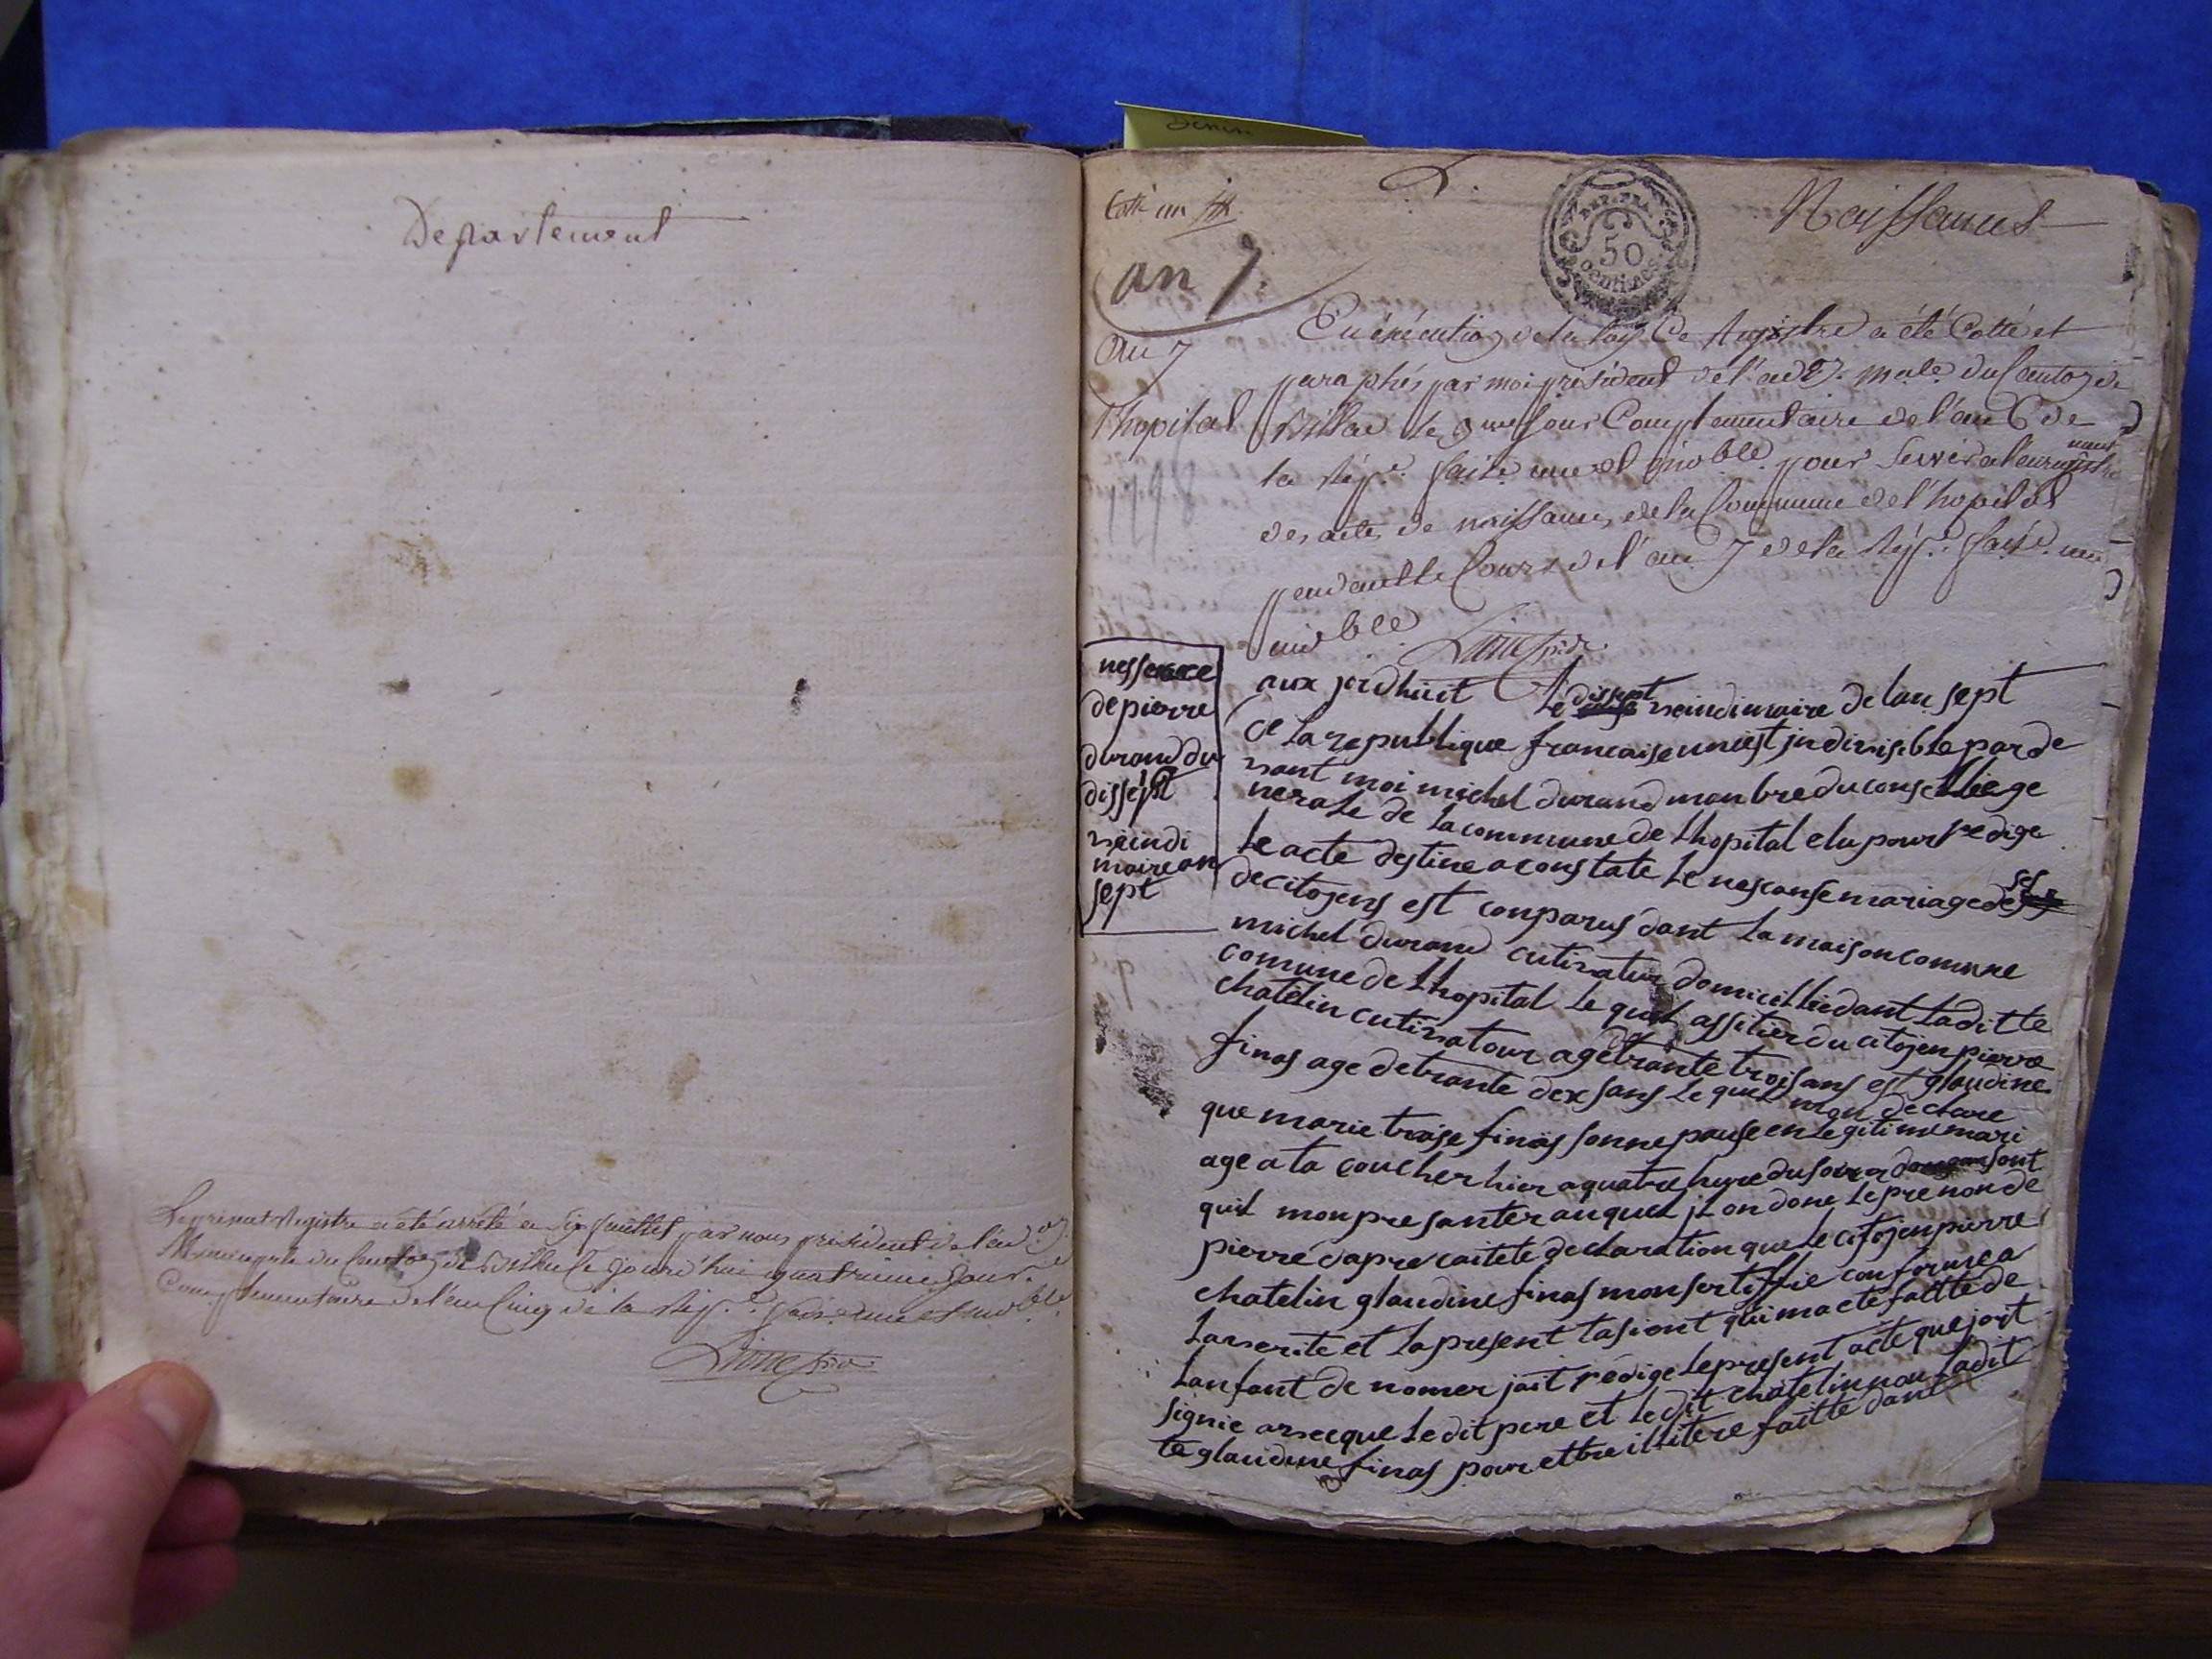 Département
Le présent Registre a été arrêté a six feuillets par nous président de l'ad.on
Municipale du Canton de Ce jourd'hui quatrieme jour
Complementaire de l'an Cinq de la Rép.e une et
Cotté un
an 7
Naissances
REP. FRA.
50
centimes
An 7
l'hopital
En éxécution de la loy Ce Registre a été Cotté et
paraphés par moi président de l'ad.on male du Canton de
le jour Complementaire de l'an 6 de
la Rép.e une et pour servir a
des actes de naissances de la Commune de l'hopital
pendant le Cours de l'an 7 de la Rép.e une
nessence
de pierre
durand du
dissept
veindi
maire an
sept
aux jordhuit Le dissept veindimaire de lan sept
de La republique francaise uniest jndivisible par de
vant moi michel durand manbre du conselle ge
nerale de La commune de Lhopital elu pour redige
Le acte destine a constate Le nescanse mariage de ses
de citoyens est conparus dant La maison comune
michel durand cutivatur domicillie dant Laditte
comune de Lhopital Le quel assitier du citoyen pierre
chatelin cutivatour age de trante trois ans est glaudine
finas age de trante dex sans Le quel mon declare
que marie finas sonne pouse en Legitime mari
age a ta coucher hier a quatre hure du soir sont
quil mon presanter auquel jl on done Le prenon de
pierre dapre caitete declaration que Le citoyen pierre
chatelin glaudine finas mon sertiffie conforme a
La verite et La present tasiont qui ma cte faitte de
Lanfant de nomer jait rédige Le present acte que jait
signie avecque Le dit pere et Le dit chatelin non Ladit
te glaudine finas pour ettre illitere faitte dant